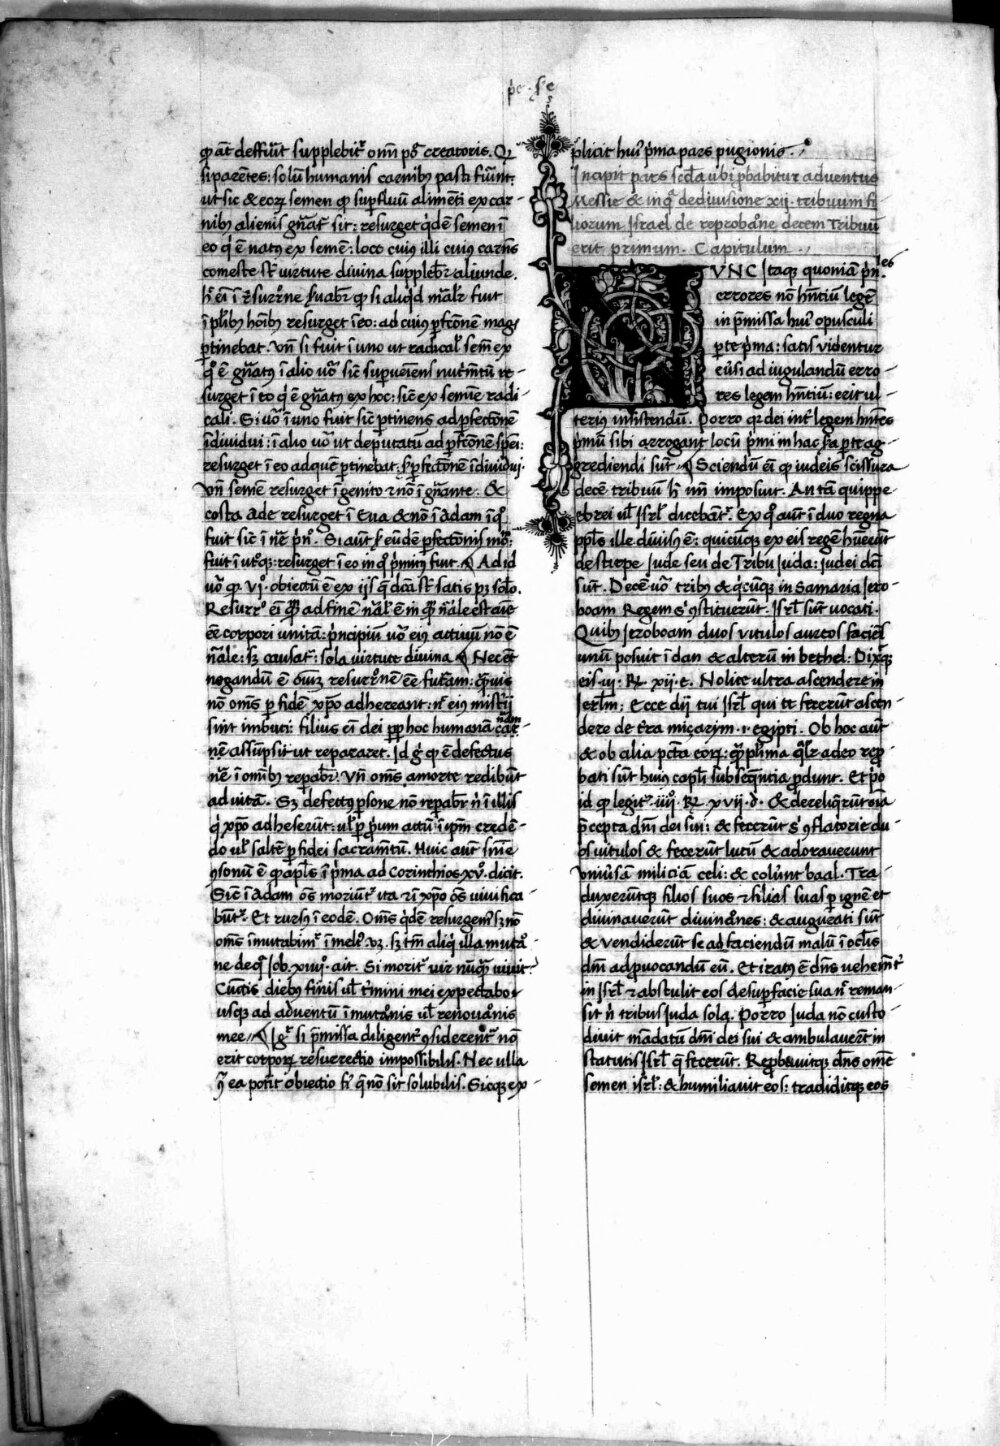 p̃e · se
ꝙ aut̃ deffuit supplebit᷑ om̃i po᷑ creatoris. Qꝛ
si parẽtes: solũ humanis carnibꝰ pasti fiũnt:
ut sic & eoꝝ semen ꝙ supfluũ alimẽti ex car-
nibꝰ alienis gñat᷑ sit: resurget q̃dẽ semen ĩ
eo q̃ ẽ natus ex semẽ: loco cuiꝰ illi cuiꝰ carñs
comeste sũt virtute divina supplebr̃ aliunde.
ĩ pl̃ibꝰ hoĩbꝰ resurget ĩ eo: ad cuiꝰ ꝑfcõnẽ magꝭ
ꝑtinebat. Vñ si fuit ĩ uno ut radical᷑ semẽ ex
q̊ ẽ gñatꝰ ĩ alio u᷑o sic̃ supueniens nutrim̃tũ re-
surget ĩ eo q̃ ẽ gñatus ex hoc: sic̃ ex semine radi
cali. Si u᷑o ĩ uno fuit sic̃ ptinens ad pfectionẽ
ĩdividui: ĩ alio u᷑o ut deputatũ ad ꝑfcõnẽ sp̃ei:
resurget ĩ eo ad quẽ ꝑtinebat ꝑfectionẽ ĩdividui.
Vñ semẽ resurget ĩ genito & nõ ĩ gñante. &
costa ade resurget ĩ Eva & nõ ĩ Adam ĩ q̊
fuit sic̃ ĩ nẽ p̃ñ. Si aut̃ ẽũdẽ pfectionis mõ
fuit ĩ ut᷑oꝗ: resurget ĩ eo in q̊ p̃miꝰ fuit. Ad id
u᷑o ꝙ vi᷑o. obiectũ ẽ ex ijs q̃ dc̃a sũt satis pꝫ sol̃o.
Resurr᷑o eĩ ad finẽ nãl᷑ ẽ in q̃ nãle est aĩe
ẽe corpori unitã: p̃ncipiũ u᷑o eiꝰ activũ nõ ẽ
nãle: sꝫ causat᷑: sola virtute divina. Nec eĩ
negandũ ẽ oĩuꝫ resurr᷑onẽ ẽe futurã: q̃vis
nõ om̃s p fidẽ xp̃o adhereant: ñ eiꝰ mist̃ij
sint imbuti: filius eĩ dei ppt̃ hoc humanã nãm
nẽ assũpsit ut repararet. Id g̃ ꝙ ẽ defectus
nẽ ĩ om̃ibꝰ repabr̃. Vñ om̃s a morte redibũt
ad vitã. Sꝫ defectꝰ psone nõ repabr̃ ñ ĩ illis
q̃ xp̃o adheserũt: ul᷑ p p̃prũm actũ ĩ ip̃m credẽ-
do ul᷑ saltẽ p fidei sacram̃tũ. Huic aut̃ sm̃ie
ꝯsonũ ẽ q̃ apl̃s ĩ p̃ma ad Corinthios xv᷑. dicit.
Sic̃ ĩ Adam õs moriunt᷑ ita & ĩ xp̃o õs vivifica
bũt᷑. Et rursꝰ ĩ eodẽ. Om̃s q̃dẽ resurgemꝰ sꝫ nõ
om̃s ĩmutabim᷑ ĩ meliꝰ vꝫ. sꝫ tm̃ aliq̃ illa mutã-
ne de q̃ Job. xiiij᷑. ait. Si morit᷑ vir nũq̃ vivit?
Cũctis diebꝰ finis ul᷑ t᷑mini mei expectabo
usꝗ ad adventũ ĩmutãnis ul᷑ renovãonis
mee. Ig᷑ si p̃missa diligent᷑ ꝯsiderent᷑ nõ
erit corporꝝ resurrectio impossibilis. Nec ulla
ꝯ̃ ea poterit obiectio fi᷑ q̃ nõ sit solubilis. Sicꝗ ex-
plicit huiꝰ p̃ma pars pugionis.
Incipit pars sec̃da ubi ꝓbabitur adventus
Messie & inq̃ de divisione xij. tribuum fi
liorum Israel de reprobãone decem Tribuũ
erit primum. Capitulum.
NVNC Itaꝗ quoniã p̃ñtes
errores nõ hñtiũ legẽ
in p̃missa huiꝰ opusculi
ꝑte p̃ma: satis videntur
eu᷑si ad iugulandũ erro-
res legem hñtiũ: erit ul-
teriꝰ insistendũ. Porro qꝛ dei int̃ legem hñtes
pm̃ũ sibi arrogant locũ p̃mi in hac sc̃da pte ag-
grediendi sũt. Sciendũ eĩ ꝙ iudeis scissura
decẽ tribuũ h᷑ nm̃ imposuit. An tã quippe
ebrei ul᷑ Isr̃l dicebãt᷑. Ex q̊ aut̃ ĩ duo regna
ppl̃s ille divisꝰ ẽ: quicũꝗ ex eis regẽ habuerũt
de stirpe Jude seu de Tribu Juda: Judei dc̃i
sũt. Decẽ u᷑o tribꝰ & q̃cũꝗ in Samaria Jero-
boam Regem s᷑ ꝯstituerũt. Isr̃l sũt vocati.
Quibꝰ Jeroboam duos vitulos aureos faciẽs
unũ posuit ĩ dan & alterũ in bethel. Dixitꝗ
eis iij᷑. R̃. xij. e. Nolite ultra ascendere in
Jer̃lm̃: Ecce dij tui Isr̃l qui te fecerũt ascen-
dere de t̃ra miçraim .i. egipti. Ob hoc aut̃
& ob alia pcc̃ta eorꝝ: q̃ pl̃ima q̃lr̃ adeo rep-
bati sũt huiꝰ capl̃i subseq̃ntia ꝓdunt. Et p̃o
id ꝙ legit᷑ iiij᷑. R̃. xvij. d. & dereliq̃rũt oĩa
p̃cepta dñi dei sui: & fecerũt s᷑ ꝯflatorie du-
os vitulos & fecerũt lucũ & adoraverunt
universã miliciã celi: & colũnt baal. Tra
duxerũtꝗ filios suos & filias suas p ignẽ et
divinaverũt divinãones: & augurati sũt
& vendiderũt se ad faciendũ malũ ĩ oc̃lis
dñi ad ꝓvocandũ eũ. Et iratꝰ ẽ dñs vehem̃t᷑
in Isr̃l & abstulit eos de sup facie sua ñ reman-
sit ñ tribus Juda sola. Porro Juda nõ custo
divit mãdatũ dñi dei sui & ambulaverũt in
statutis Isr̃l q̃ fecerũt. Reꝓbavitꝗ dñs om̃e
semen isr̃l: & humiliavit eos: tradiditꝗ eos